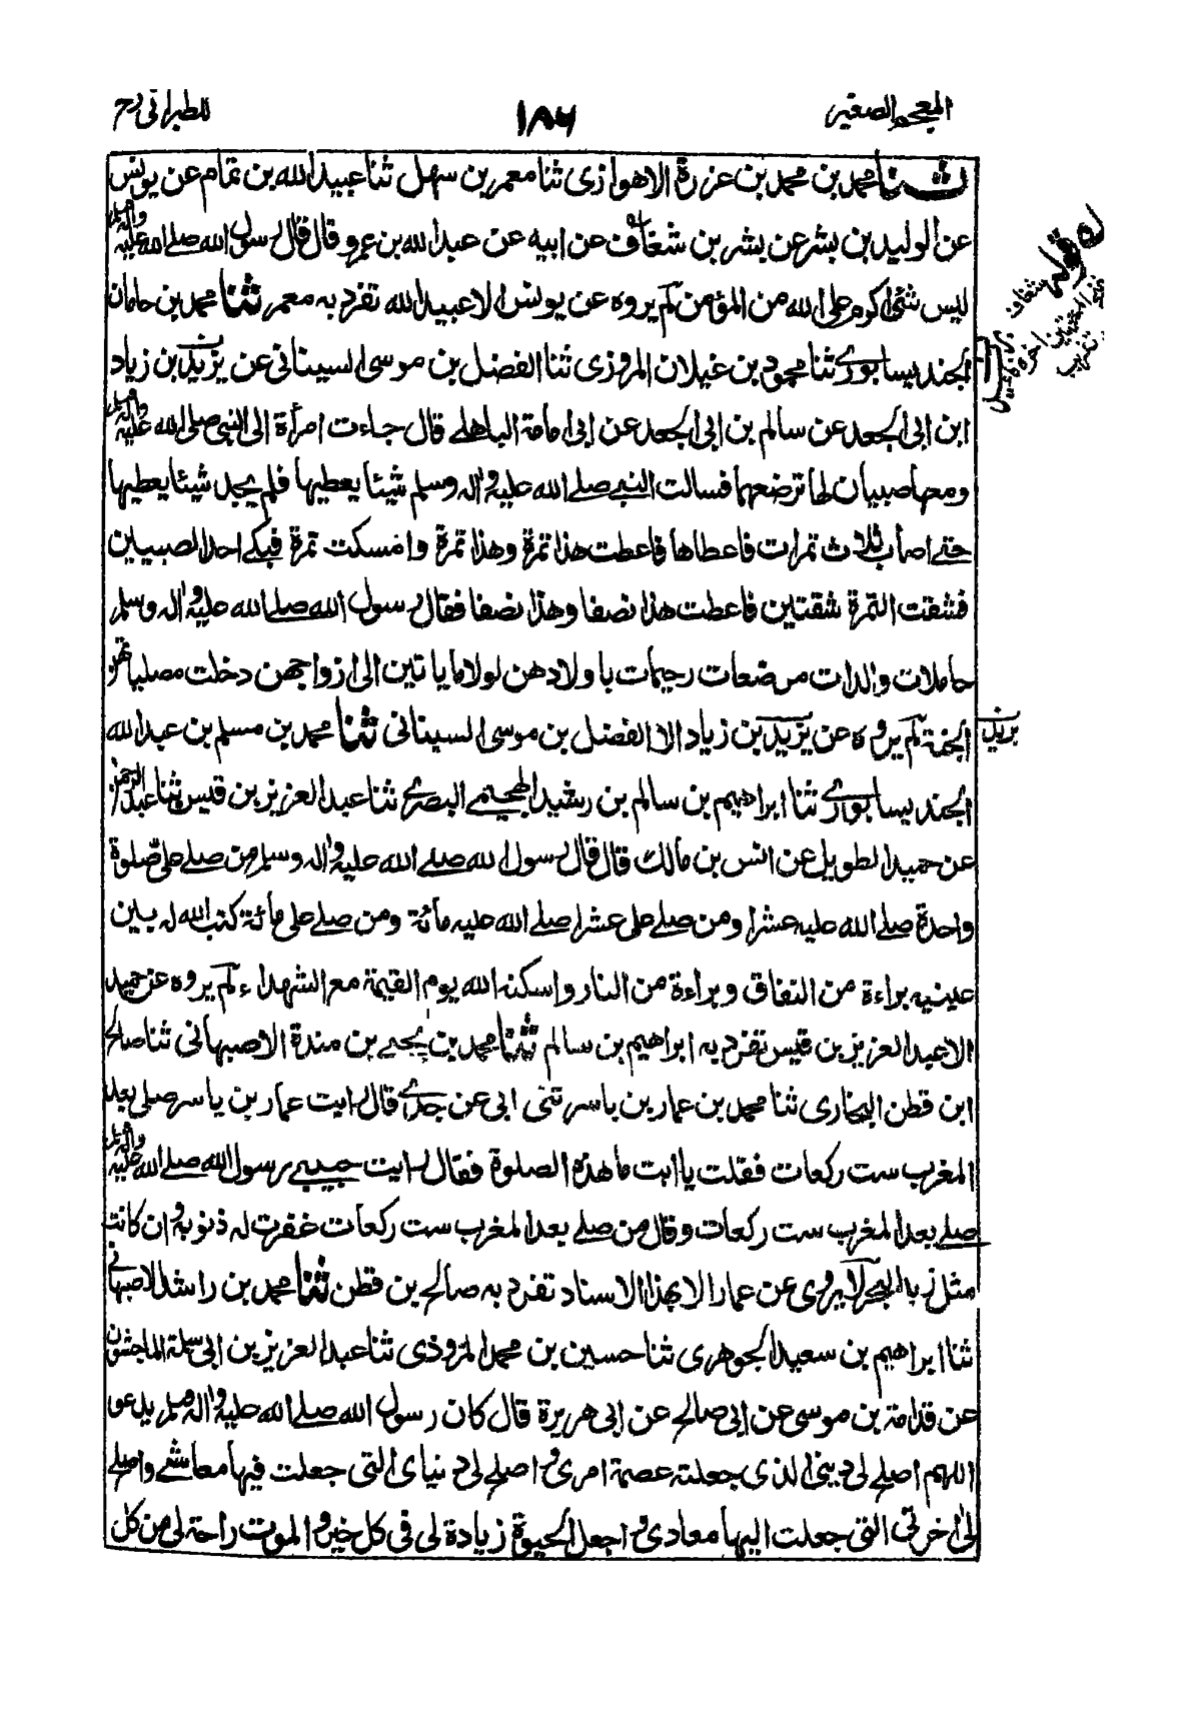 المعجم الصغير
١٨٦
للطبرانی رح
ثنا محمد بن محمد بن عزرة الاهوازی ثنا معمر بن سهل ثنا عبيد الله بن تمام عن يونس
عن الوليد بن بشر عن بشر بن شغاف عن ابيه عن عبد الله بن عمرو قال قال رسول الله صلے الله عليه واٰله وسلم
ليس شئ اكرم علی الله من المؤمن لم يروه عن يونس الا عبيد الله تفرد به معمر ثنا محمد بن حامان
الجنديسابوری ثنا محمود بن غيلان المروزی ثنا الفضل بن موسی السينانی عن يزيد بن زياد
ابن ابی الجعد عن سالم بن ابی الجعد عن ابی امامة الباهلے قال جاءت امرأة الی النبی صلی الله عليه واٰله وسلم
ومعها صبيان لها ترضعهما فسالت النبی صلے الله عليه واٰله وسلم شيئا يعطيها فلم يجد شيئا يعطيها
حتے اصاب ثلاث تمرات فاعطاها فاعطت هذا تمرة وهذا تمرة وامسكت تمرة فبکے احد الصبيين
فشقت التمرة شقتين فاعطت هذا نصفا وهذا نصفا فقال رسول الله صلے الله عليه واٰله وسلم
حاملات والدات مرضعات رحيمات باولادهن لولا ما ياتين الی ازواجهن دخلت مصلياتهن
الجنة لم يروه عن يزيد بن زياد الا الفضل بن موسی السينانی ثنا محمد بن مسلم بن عبد الله
الجنديسابوری ثنا ابراهيم بن سالم بن رشيد الهجيمے البصری ثنا عبد العزيز بن قيس بن عبد الرحمن
عن حميد الطويل عن انس بن مالك قال قال رسول الله صلے الله عليه واٰله وسلم من صلے علی صلوة
واحدة صلے الله عليه عشرا ومن صلے علی عشرا صلے الله عليه مائة ومن صلے علی مائة كتب الله له بين
عينيه براءة من النفاق وبراءة من النار واسكنه الله يوم القيمة مع الشهداء لم يروه عن حميد
الا عبد العزيز بن قيس تفرد به ابراهيم بن سالم ثنا محمد بن يحيے بن مندة الاصبهانی ثنا صالح
ابن قطن البخاری ثنا محمد بن عمار بن ياسر ثنی ابی عن جدی قال رايت عمار بن ياسر صلی بعد
المغرب ست ركعات فقلت يا ابت ما هذه الصلوة فقال رايت حبيبے رسول الله صلے الله عليه واٰله وسلم
صلے بعد المغرب ست ركعات وقال من صلے بعد المغرب ست ركعات غفرت له ذنوبه وان كانت
مثل زبد البحر لا يروی عن عمار الا بهذا الاسناد تفرد به صالح بن قطن ثنا محمد بن راشد الاصبهانی
ثنا ابراهيم بن سعيد الجوهری ثنا حسين بن محمد المروذی ثنا عبد العزيز بن ابی سلمة الماجشون
عن قدامة بن موسی عن ابی صالح عن ابی هريرة قال كان رسول الله صلے الله عليه واٰله وسلم يدعو
اللهم اصلح لی دينی الذی جعلته عصمة امری واصلح لی دنيای التی جعلت فيها معاشے واصلح
لی اخرتی التی جعلت اليها معادی واجعل الحيوة زيادة لی فی كل خير والموت راحة لی من كل
له قوله شغاف
تقريب
يزيد